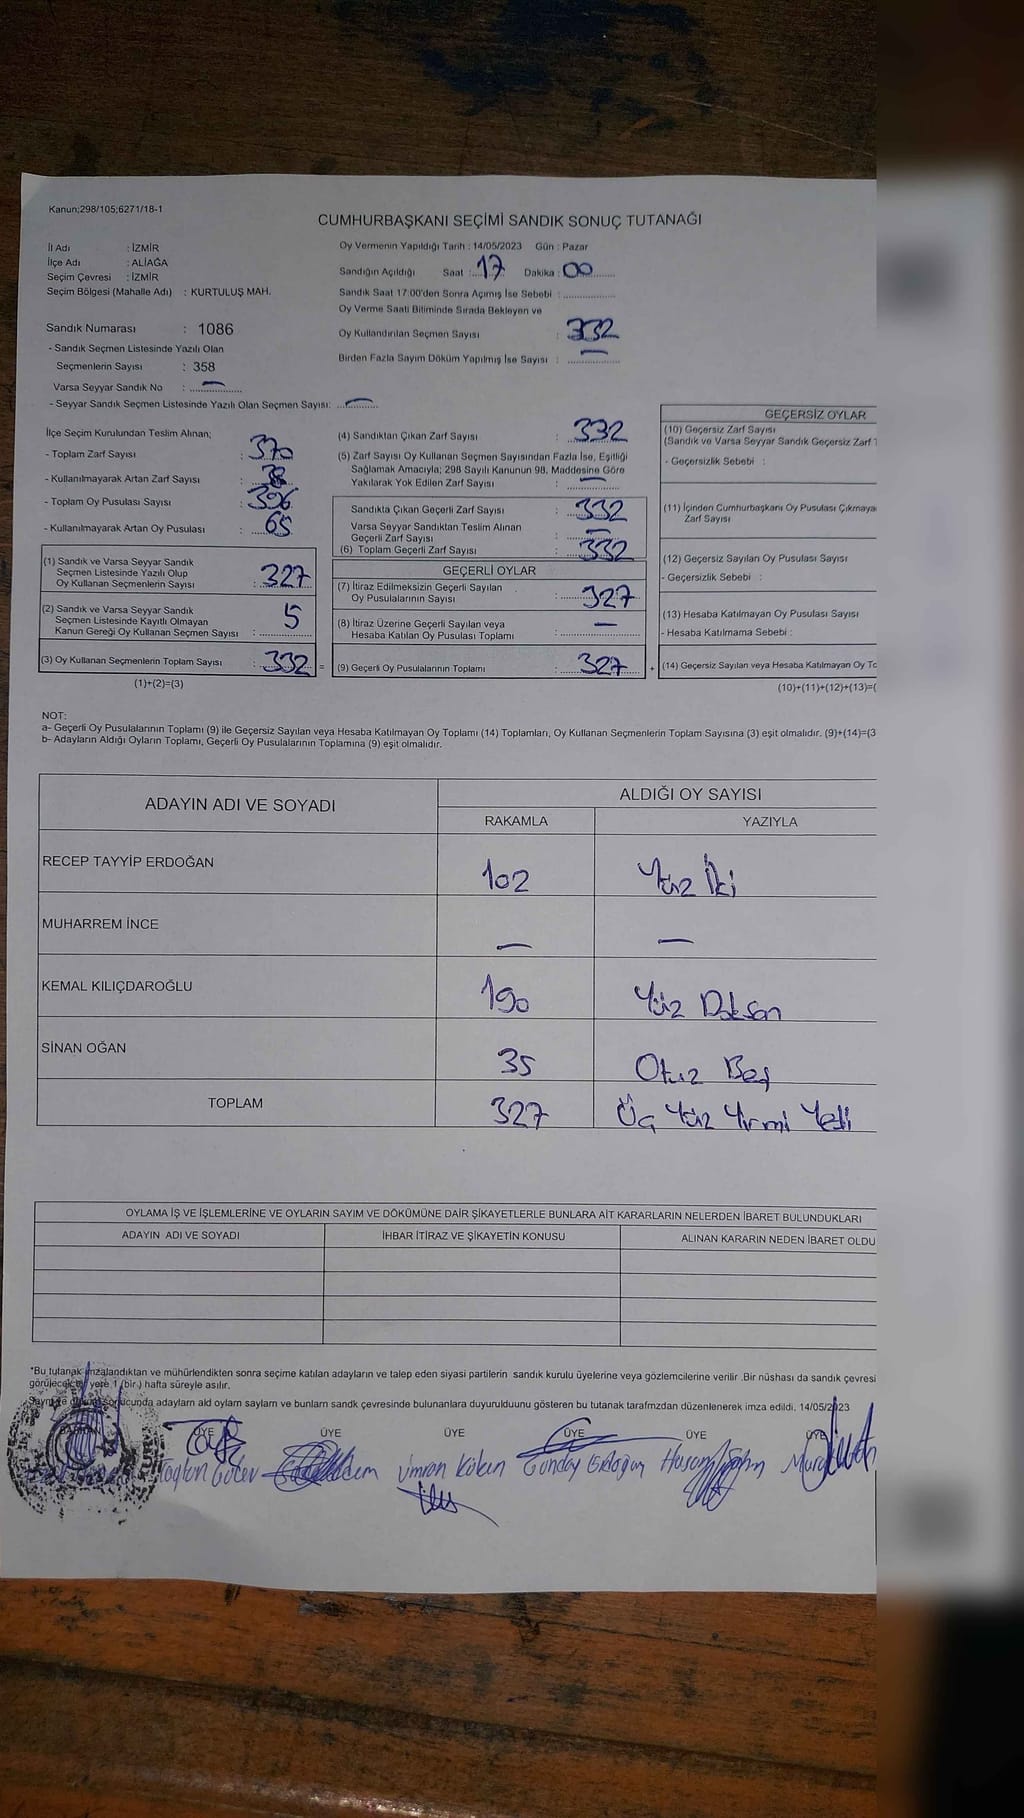 Kanun;298/105;6271/18-1
CUMHURBAŞKANI SEÇİMİ SANDIK SONUÇ TUTANAĞI
İl Adı : İZMİR
İlçe Adı : ALİAĞA
Seçim Çevresi : İZMİR
Seçim Bölgesi (Mahalle Adı) : KURTULUŞ MAH.
Oy Vermenin Yapıldığı Tarih : 14/05/2023 Gün : Pazar
Sandığın Açıldığı Saat : 17 Dakika : 00
Sandık Saat 17:00'den Sonra Açımış İse Sebebi :
Oy Verme Saati Bitiminde Sırada Bekleyen ve
Oy Kullandırılan Seçmen Sayısı : 332
Birden Fazla Sayım Döküm Yapılmış İse Sayısı : —
Sandık Numarası : 1086
- Sandık Seçmen Listesinde Yazılı Olan
Seçmenlerin Sayısı : 358
Varsa Seyyar Sandık No : —
- Seyyar Sandık Seçmen Listesinde Yazılı Olan Seçmen Sayısı: —
İlçe Seçim Kurulundan Teslim Alınan;
- Toplam Zarf Sayısı : 370
- Kullanılmayarak Artan Zarf Sayısı : 38
- Toplam Oy Pusulası Sayısı :
- Kullanılmayarak Artan Oy Pusulası : 65
(1) Sandık ve Varsa Seyyar Sandık
Seçmen Listesinde Yazılı Olup
Oy Kullanan Seçmenlerin Sayısı : 327
(2) Sandık ve Varsa Seyyar Sandık
Seçmen Listesinde Kayıtlı Olmayan
Kanun Gereği Oy Kullanan Seçmen Sayısı : 5
(3) Oy Kullanan Seçmenlerin Toplam Sayısı : 332 =
(1)+(2)=(3)
(4) Sandıktan Çıkan Zarf Sayısı : 332
(5) Zarf Sayısı Oy Kullanan Seçmen Sayısından Fazla İse, Eşitliği
Sağlamak Amacıyla; 298 Sayılı Kanunun 98. Maddesine Göre
Yakılarak Yok Edilen Zarf Sayısı : —
Sandıkta Çıkan Geçerli Zarf Sayısı : 332
Varsa Seyyar Sandıktan Teslim Alınan
Geçerli Zarf Sayısı : —
(6) Toplam Geçerli Zarf Sayısı : 332
GEÇERLİ OYLAR
(7) İtiraz Edilmeksizin Geçerli Sayılan
Oy Pusulalarının Sayısı : 327
(8) İtiraz Üzerine Geçerli Sayılan veya
Hesaba Katılan Oy Pusulası Toplamı : —
(9) Geçerli Oy Pusulalarının Toplamı : 327 +
GEÇERSİZ OYLAR
(10) Geçersiz Zarf Sayısı
(Sandık ve Varsa Seyyar Sandık Geçersiz Zarf
- Geçersizlik Sebebi :
(11) İçinden Cumhurbaşkanı Oy Pusulası Çıkmaya
Zarf Sayısı
(12) Geçersiz Sayılan Oy Pusulası Sayısı
- Geçersizlik Sebebi :
(13) Hesaba Katılmayan Oy Pusulası Sayısı
- Hesaba Katılmama Sebebi :
(14) Geçersiz Sayılan veya Hesaba Katılmayan Oy To
(10)+(11)+(12)+(13)=(
NOT:
a- Geçerli Oy Pusulalarının Toplamı (9) ile Geçersiz Sayılan veya Hesaba Katılmayan Oy Toplamı (14) Toplamları, Oy Kullanan Seçmenlerin Toplam Sayısına (3) eşit olmalıdır. (9)+(14)=(3
b- Adayların Aldığı Oyların Toplamı, Geçerli Oy Pusulalarının Toplamına (9) eşit olmalıdır.
ADAYIN ADI VE SOYADI
ALDIĞI OY SAYISI
RAKAMLA YAZIYLA
RECEP TAYYİP ERDOĞAN 102 Yüz İki
MUHARREM İNCE — —
KEMAL KILIÇDAROĞLU 190 Yüz Doksan
SİNAN OĞAN 35 Otuz Beş
TOPLAM 327 Üç Yüz Yirmi Yedi
OYLAMA İŞ VE İŞLEMLERİNE VE OYLARIN SAYIM VE DÖKÜMÜNE DAİR ŞİKAYETLERLE BUNLARA AİT KARARLARIN NELERDEN İBARET BULUNDUKLARI
ADAYIN ADI VE SOYADI İHBAR İTİRAZ VE ŞİKAYETİN KONUSU ALINAN KARARIN NEDEN İBARET OLDU
*Bu tutanak imzalandıktan ve mühürlendikten sonra seçime katılan adayların ve talep eden siyasi partilerin sandık kurulu üyelerine veya gözlemcilerine verilir .Bir nüshası da sandık çevresi
yere 1 (bir ) hafta süreyle asılır.
sonucunda adayların ald oylam saylam ve bunlarn sandk çevresinde bulunanlara duyurulduunu gösteren bu tutanak tarafmzdan düzenlenerek imza edildi. 14/05/2023
BAŞKAN ÜYE ÜYE ÜYE ÜYE ÜYE ÜYE
Ümran Günday Erdoğan Hasan